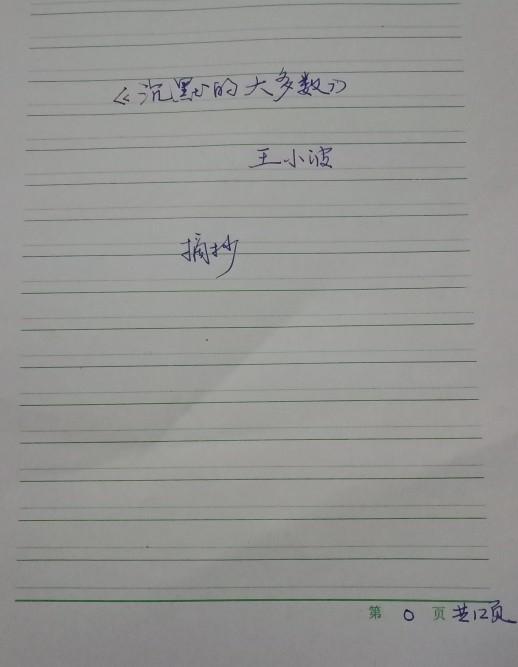 《沉默的大多数》
王小波
摘抄
第 0 页 共12页